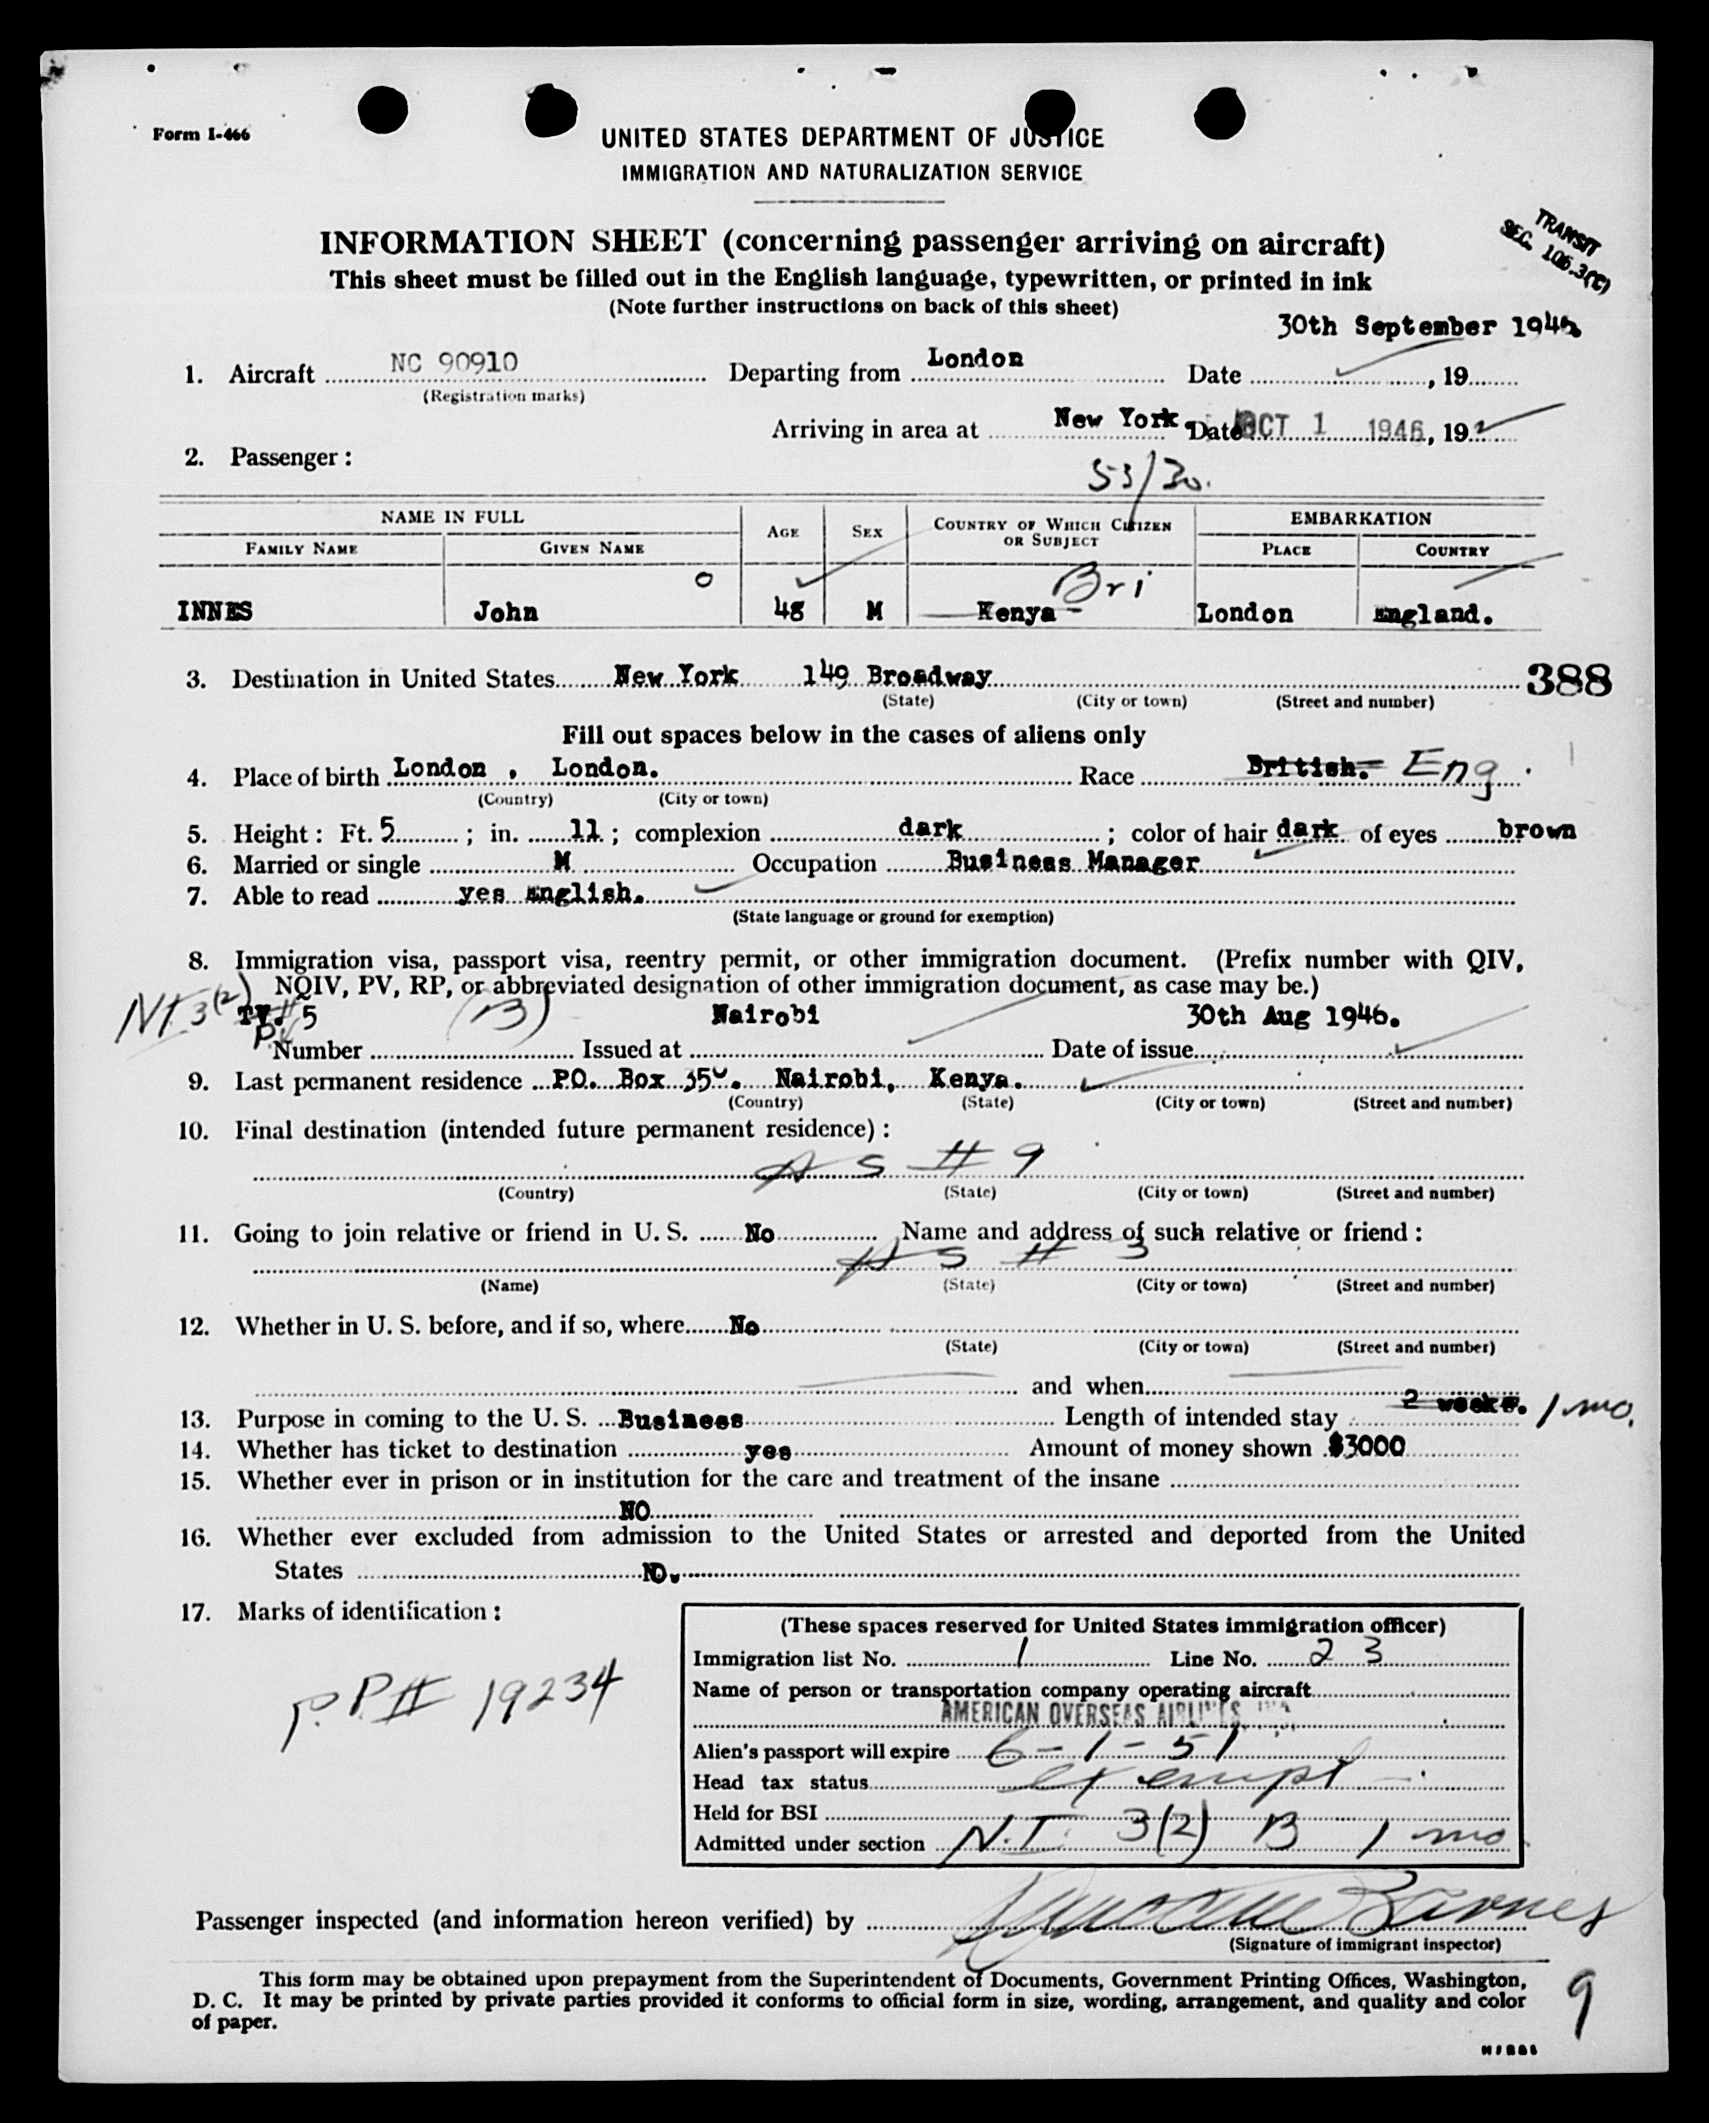 Form I-466
UNITED STATES DEPARTMENT OF JUSTICE
IMMIGRATION AND NATURALIZATION SERVICE
INFORMATION SHEET (concerning passenger arriving on aircraft)
TRANSIT
SEC. 106.3(C)
This sheet must be filled out in the English language, typewritten, or printed in ink
(Note further instructions on back of this sheet)
30th September 1946
1. Aircraft NC 90910 Departing from London Date , 19
(Registration marks)
Arriving in area at New York. Date OCT 1 1946, 19
2. Passenger:
53/30.
NAME IN FULL AGE SEX COUNTRY OF WHICH CITIZEN OR SUBJECT EMBARKATION
FAMILY NAME GIVEN NAME PLACE COUNTRY
0 Bri
INNES John 48 M Kenya London England.
3. Destination in United States New York 149 Broadway 388
(State) (City or town) (Street and number)
Fill out spaces below in the cases of aliens only
4. Place of birth London , London. Race British. Eng.
(Country) (City or town)
5. Height: Ft. 5 ; in. 11 ; complexion dark ; color of hair dark of eyes brown
6. Married or single M Occupation Business Manager
7. Able to read yes English.
(State language or ground for exemption)
8. Immigration visa, passport visa, reentry permit, or other immigration document. (Prefix number with QIV,
NQIV, PV, RP, or abbreviated designation of other immigration document, as case may be.)
NI 3(2) TV. # 5 (B) Nairobi 30th Aug 1946.
PV
Number Issued at Date of issue
9. Last permanent residence P.O. Box 350. Nairobi, Kenya.
(Country) (State) (City or town) (Street and number)
10. Final destination (intended future permanent residence):
AS # 9
(Country) (State) (City or town) (Street and number)
11. Going to join relative or friend in U. S. No Name and address of such relative or friend:
AS # 3
(Name) (State) (City or town) (Street and number)
12. Whether in U. S. before, and if so, where No
(State) (City or town) (Street and number)
and when
13. Purpose in coming to the U. S. Business Length of intended stay 2 weeks. 1 mo.
14. Whether has ticket to destination yes Amount of money shown $3000
15. Whether ever in prison or in institution for the care and treatment of the insane
NO
16. Whether ever excluded from admission to the United States or arrested and deported from the United
States NO.
17. Marks of identification:
P.P# 19234
(These spaces reserved for United States immigration officer)
Immigration list No. 1 Line No. 23
Name of person or transportation company operating aircraft
AMERICAN OVERSEAS AIRLINES, INC.
Alien's passport will expire 6-1-51
Head tax status exempt
Held for BSI
Admitted under section N.I. 3(2) B 1 mo.
Passenger inspected (and information hereon verified) by Barnes
(Signature of immigrant inspector)
This form may be obtained upon prepayment from the Superintendent of Documents, Government Printing Offices, Washington,
D. C. It may be printed by private parties provided it conforms to official form in size, wording, arrangement, and quality and color
of paper.
9